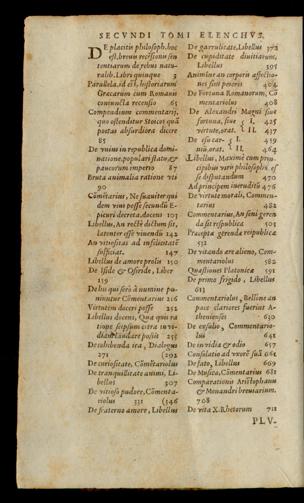 SECVNDI TOMI ELENCHVS.
DE placitis philosoph. hoc
est, breuis recensio sen
tentiarum de rebus natu-
ralib. Libri quinque 3
Parallela, id est, historiarum
Græcarum cum Romanis
coniuncta recensio 65
Compendium commentarij,
quo ostenditur Stoicos quā
poetas absurdiora dicere
85
De vnius in republica domi-
natione, populari statu, &
paucorum imperio 87
Bruta animalia ratione vti
90
Cōmētarius, Ne suauiter qui
dem viui posse secundū E-
picuri decreta, docens 103
Libellus, An rectè dictum sit,
latenter esse viuendū 142
An vitiositas ad infelicitatē
sufficiat. 147
Libellus de amore prolis 150
De Iside & Osiride, Liber
159
De his qui serò à numine pu-
niuntur Cōmentarius 216
Virtutem doceri posse 252
Libellus docens, Qua quis ra
tione seipsum citra inui-
diam laudare possit 255
De cohibenda ira, Dialogus
271 (292
De curiositate, Cōmētariolus
De tranquillitate animi, Li-
bellus 307
De vitioso pudore, Cōmenta-
riolus 331 (346
De fraterno amore, Libellus
De garrulitate, Libellus 372
De cupiditate diuitiarum,
Libellus 395
Animi ne an corporis affectio-
nes sint peiores 404
De Fortuna Romanorum, Cō
mentariolus 408
De Alexandri Magni siue
fortuna, siue I. 425
virtute, orat. II. 437
De esu car- I. 459
niū, orat. II. 464
Libellus, Maximè cum prin-
cipibus viris philosophū es-
se disputandum 470
Ad principem ineruditū 476
De virtute morali, Commen-
tarius 482
Commentarius, An seni geren
da sit respublica 505
Præcepta gerendæ reipublicæ
532
De vitando ære alieno, Com-
mentariolus 582
Quæstiones Platonicæ 591
De primo frigido, Libellus
613
Commentariolus, Bello ne an
pace clariores fuerint A-
thenienses 630
De exsilio, Commentario-
lus 641
De inuidia & odio 657
Consolatio ad vxorē suā 661
De fato, Libellus 669
De Musica, Cōmentarius 681
Comparationis Aristophanis
& Menandri breuiarium.
708
De vita X. Rhetorum 711
PLV-